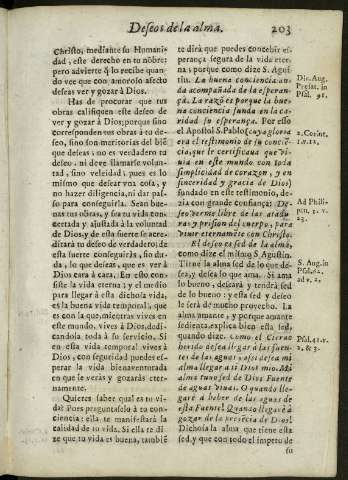 Deseos de la alma. 203
Christo, mediante su Humani-
dad, este derecho en tu nõbre:
pero advierte q̃ lo recibe quan-
do vee que con amoroso afecto
deseas ver y gozar à Dios.
Has de procurar que tus
obras califiquen este deseo de
ver y gozar à Dios; porque sino
corresponden tus obras à tu de-
seo, sino son meritorias del biẽ
que deseas; no es verdadero tu
deseo: ni deve llamarse volun-
tad, sino veleidad, pues es lo
mismo que desear vna cosa, y
no hazer diligencia, ni dar pas-
so para conseguirla. Sean bue-
nas tus obras, y sea tu vida con-
certada y ajustada à la voluntad
de Dios, y de essa suerte se acre-
ditarà tu deseo de verdadero; de
essa suerte conseguiràs, sin du-
da, lo que deseas, que es ver à
Dios cara à cara. En esto con-
siste la vida eterna; y el medio
para llegar à esta dichosa vida,
es la buena vida temporal, que
es con la que, mientras vives en
este mundo, vives à Dios, dedi-
candola toda à su servicio. Si
en esta vida temporal vives à
Dios, con seguridad puedes es-
perar la vida bienaventurada
en que le veràs y gozaràs eter-
namente.
Quieres saber qual es tu vi-
da? Pues preguntaselo à tu con-
ciencia: ella te manifestarà la
calidad de tu vida. Si ella te di-
ze que tu vida es buena, tambiẽ
te dirà que puedes concebir es-
perança segura de la vida eter-
na; porque como dize S. Agus-
tin. La buena conciencia an-
da acompañada de la esperan-
ça. La razõ es porque la bue-
na conciencia funda en la ca-
ridad su esperança. Por esso
el Apostol S. Pablo (cuya gloria
era el testimonio de su concien-
cia, que le certificava que vi-
uia en este mundo con toda
simplicidad de corazon, y en
sinceridad y gracia de Dios)
fundado en este testimonio, de-
zia con grande confiança: De-
seo verme libre de las atadu-
ras y prision del cuerpo, para
vivir eternamente con Christo.
El deseo es sed de la alma,
como dize el mismo S. Agustin.
Tiene la alma sed de lo que de-
sea, y desea lo que ama. Si ama
lo bueno, dearà y tendrà sed
de lo bueno; y essa sed y deseo
le serà de mucho provecho. La
alma amante, y porque amante
sedienta, explica bien esta sed,
quando dize. Como el Ciervo
herido desea llegar à las fuen-
tes de las aguas, assi desea mi
alma llegar à ti Dios mio. Mi
alma tuvo sed de Dios Fuente
de aguas vivas. O quando lle-
garè à beber de las aguas de
esta Fuente! Quando llegarè à
gozar de la presẽcia de Dios!
Dichosa la alma que tiene esta
sed, y que con todo el impetu de
su
Div. Aug.
Præfat. in
Psal. 91.
2. Corint.
1. v. 12.
Ad Phili-
pen. 1. v.
23.
S. Aug. in
Psal. 62.
ad v. 2.
Psal. 41. v.
2. & 3.